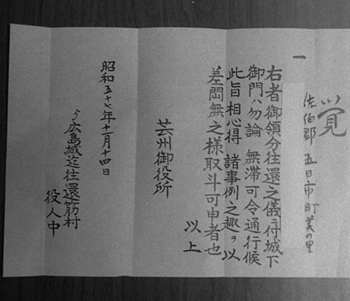 覚
佐伯郡五日市町美の里
一
右者御領分往還之儀ニ付城下
御門ハ勿論無滞可令通行候
此旨相心得諸事例之趣ヲ以
差閊無之様取斗可申者也
以上
芸州御役所
昭和五十七年十一月十四日
ゟ広島城迄往還筋村
役人中